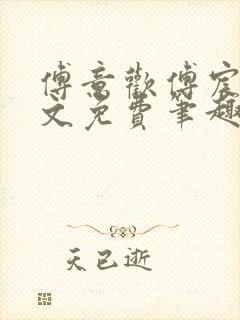 傅意歡傅宸
文免費筆趣
天已逝